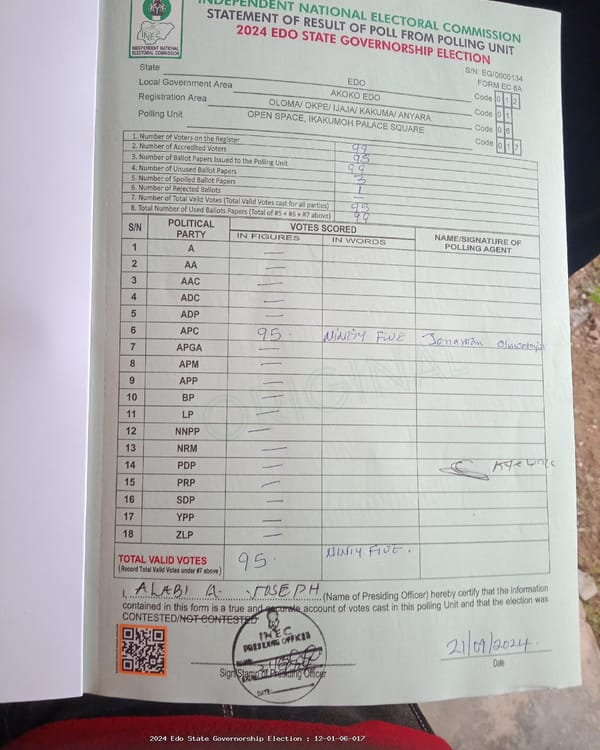 INDEPENDENT NATIONAL ELECTORAL COMMISSION
STATEMENT OF RESULT OF POLL FROM POLLING UNIT
2024 EDO STATE GOVERNORSHIP ELECTION
INEC
INDEPENDENT NATIONAL
ELECTORAL COMMISSION
S/N: EG/0000134
FORM EC 8A
State EDO
Local Government Area AKOKO EDO Code 012
Registration Area OLOMA/ OKPE/ IJAJA/ KAKUMA/ ANYARA Code 01
Polling Unit OPEN SPACE, IKAKUMOH PALACE SQUARE Code 06
Code 017
1. Number of Voters on the Register 99
2. Number of Accredited Voters 95
3. Number of Ballot Papers Issued to the Polling Unit 99
4. Number of Unused Ballot Papers 3
5. Number of Spoiled Ballot Papers 1
6. Number of Rejected Ballots —
7. Number of Total Valid Votes (Total Valid Votes cast for all parties) 95
8. Total Number of Used Ballots Papers (Total of #5 + #6 + #7 above) 99
S/N POLITICAL PARTY VOTES SCORED NAME/SIGNATURE OF POLLING AGENT
IN FIGURES IN WORDS
1 A —
2 AA —
3 AAC —
4 ADC —
5 ADP —
6 APC 95. NINETY FIVE Jonathan
7 APGA —
8 APM —
9 APP —
10 BP —
11 LP —
12 NNPP —
13 NRM —
14 PDP —
15 PRP —
16 SDP —
17 YPP —
18 ZLP —
ORIGINAL
TOTAL VALID VOTES 95. NINTY FIVE.
(Record Total Valid Votes under #7 above)
I, ALABI A. JOSEPH (Name of Presiding Officer) hereby certify that the information
contained in this form is a true and accurate account of votes cast in this polling Unit and that the election was
CONTESTED/NOT CONTESTED
INEC
PRESIDING OFFICER
DATE:
Sign/Stamp of Presiding Officer
21/09/2024
Date
2024 Edo State Governorship Election : 12-01-06-017